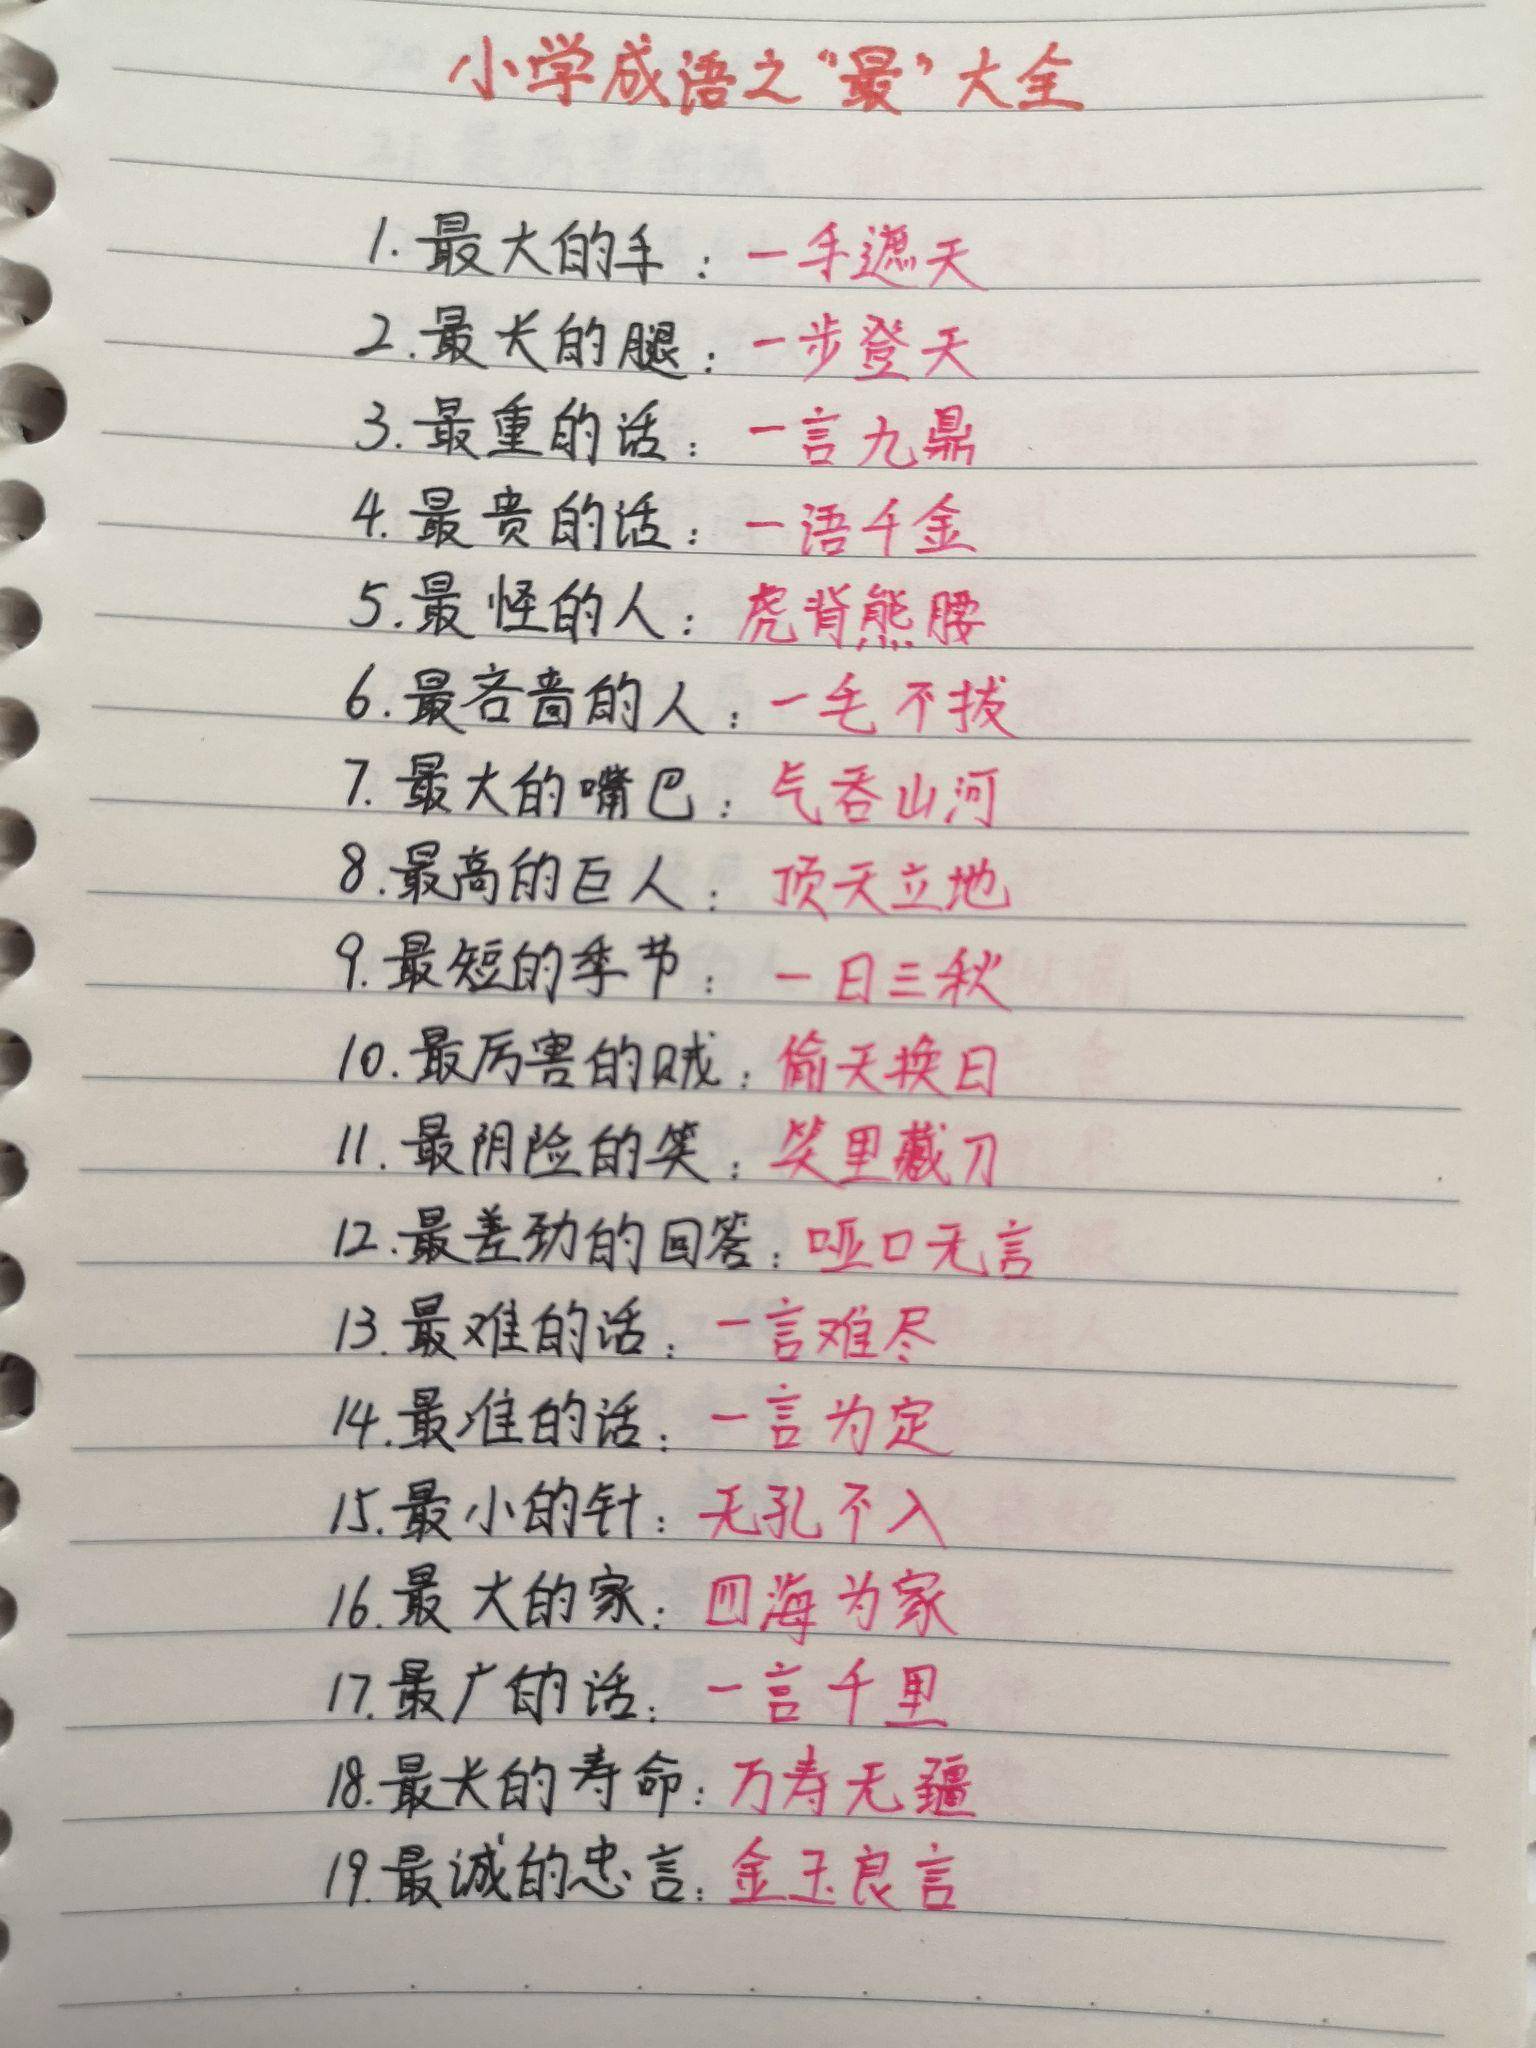 小学成语之“最”大全
1.最大的手：一手遮天
2.最长的腿：一步登天
3.最重的话：一言九鼎
4.最贵的话：一语千金
5.最怪的人：虎背熊腰
6.最吝啬的人：一毛不拔
7.最大的嘴巴：气吞山河
8.最高的巨人：顶天立地
9.最短的季节：一日三秋
10.最厉害的贼：偷天换日
11.最阴险的笑：笑里藏刀
12.最差劲的回答：哑口无言
13.最难的话：一言难尽
14.最准的话：一言为定
15.最小的针：无孔不入
16.最大的家：四海为家
17.最广的话：一言千里
18.最长的寿命：万寿无疆
19.最诚的忠言：金玉良言